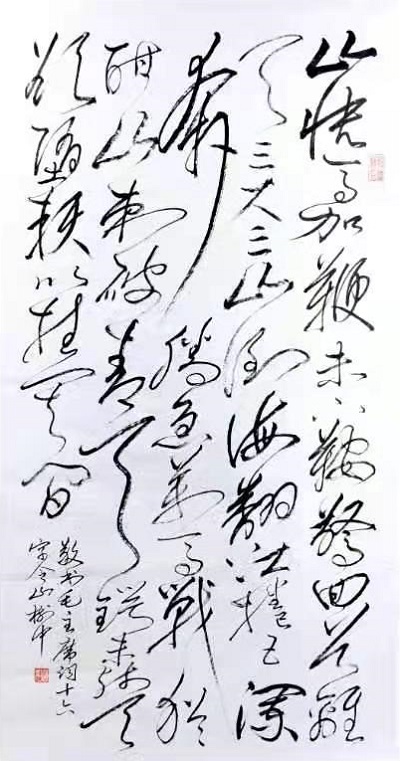 山快马加鞭未下鞍驚回首離
天三尺三山倒海翻江捲巨澜
奔腾急萬马戰猶
酣山刺破青天锷未残天
欲墮赖以拄其间
敬书毛主席词十六
字令山树中